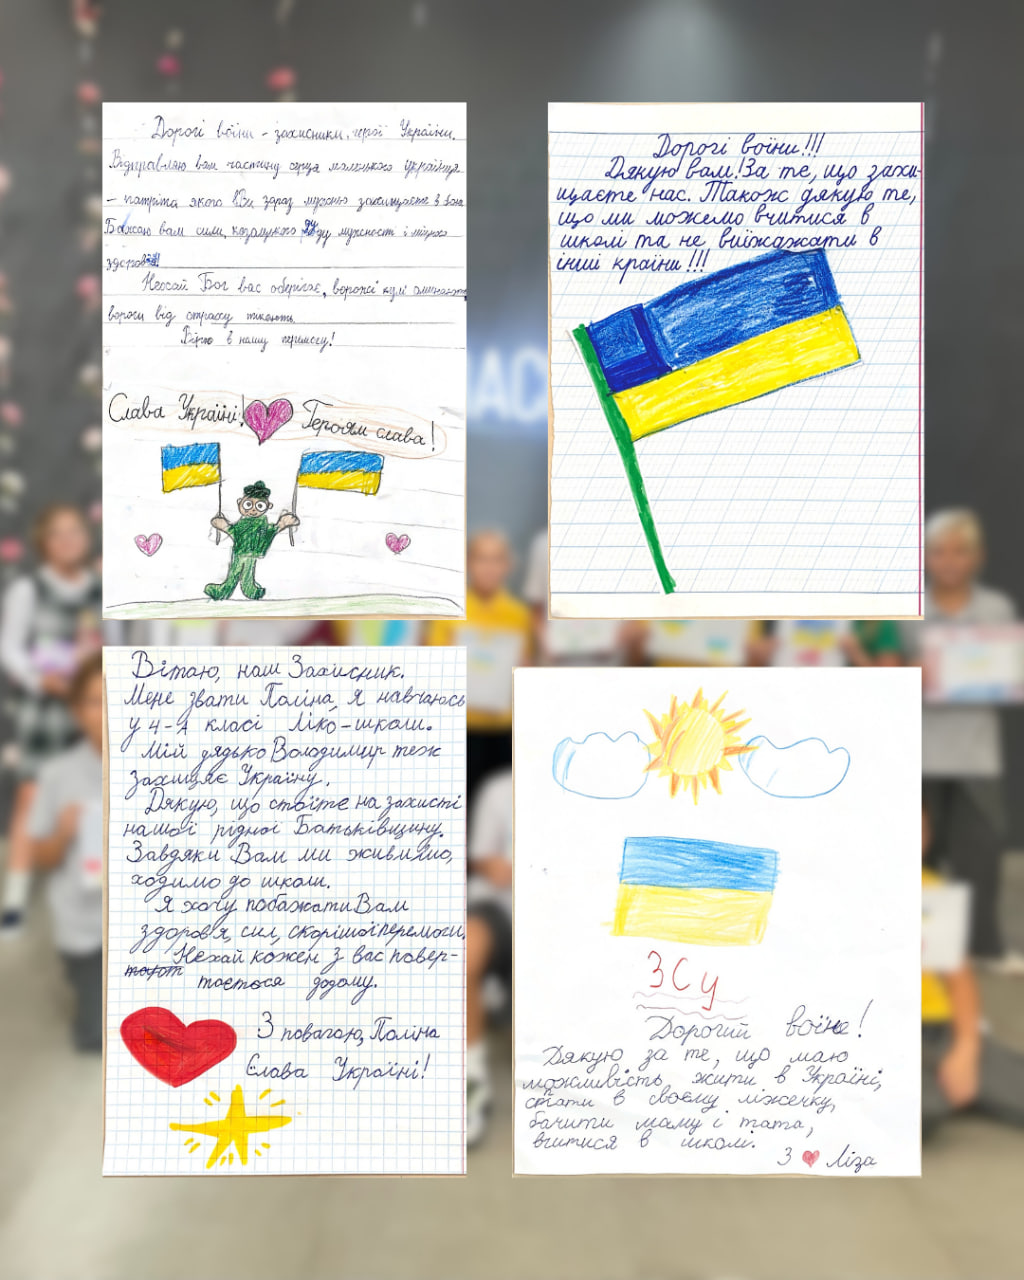 Дорогі воїни - захисники, герої України.
Відправляю вам частину серця маленького українця
- патріота якого Ви зараз мужньо захищаєте
Бажаю вам сили, козацького духу мужності і міцного
здоров'я
Нехай Бог вас оберігає, ворожі кулі оминають,
вороги від страху тікають
Вірю в нашу перемогу!
Слава Україні!
Героям слава!
Дорогі воїни!!!
Дякую вам! За те, що захи-
щаєте нас. Також дякую те,
що ми можемо вчитися в
школі та не виїжажати в
інші країни!!!
АС
Вітаю, наш Захисник.
Мене звати Поліна, я навчаюсь
у 4-А класі Ліко-школи.
Мій дядько Володимир теж
захищяє Україну.
Дякую, що стоїте на захисті
нашої рідної Батьківщину.
Завдяки Вам ми живимо,
ходимо до школи.
Я хочу побажати Вам
здоров'я, сил, скорішої перемоги.
Нехай кожен з вас повер-
тається додому.
З повагою, Поліна
Слава Україні!
ЗСУ
Дорогий воїне!
Дякую за те, що маю
можливість жити в Україні,
спати в своєму ліжечку,
бачити маму і тата,
вчитися в школі.
З Ліза